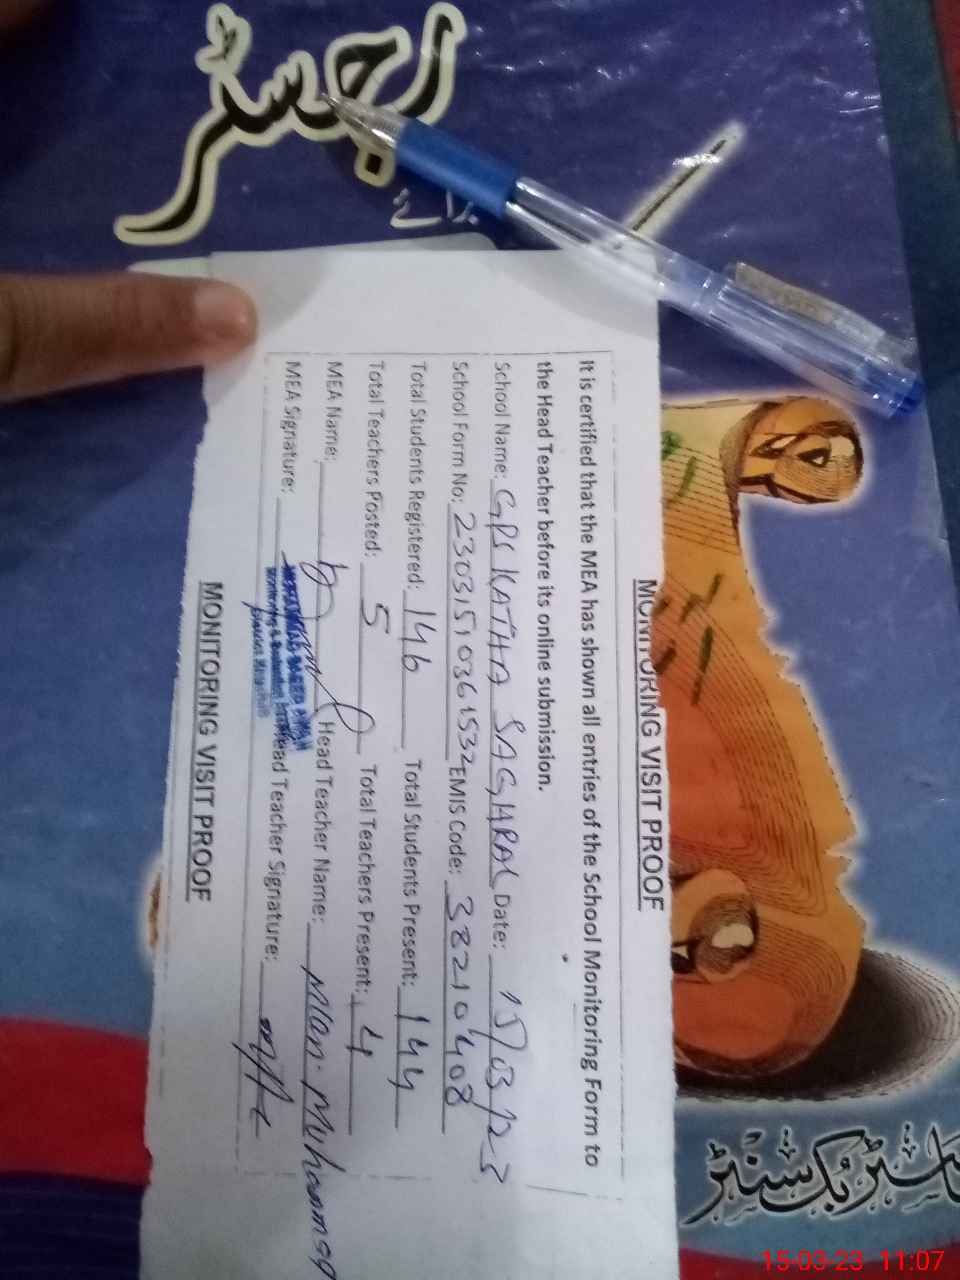 رجسٹر
برائے
MONITORING VISIT PROOF
It is certified that the MEA has shown all entries of the School Monitoring Form to
the Head Teacher before its online submission.
School Name: GPS KATHA SAGHRAL Date: 15/03/23
School Form No: 23031510361532 EMIS Code: 38210408
Total Students Registered: 146 Total Students Present: 144
Total Teachers Posted: 5 Total Teachers Present: 4
MEA Name: Head Teacher Name: Muhammad
MEA Signature: Head Teacher Signature:
MONITORING VISIT PROOF
15-03-23 11:07